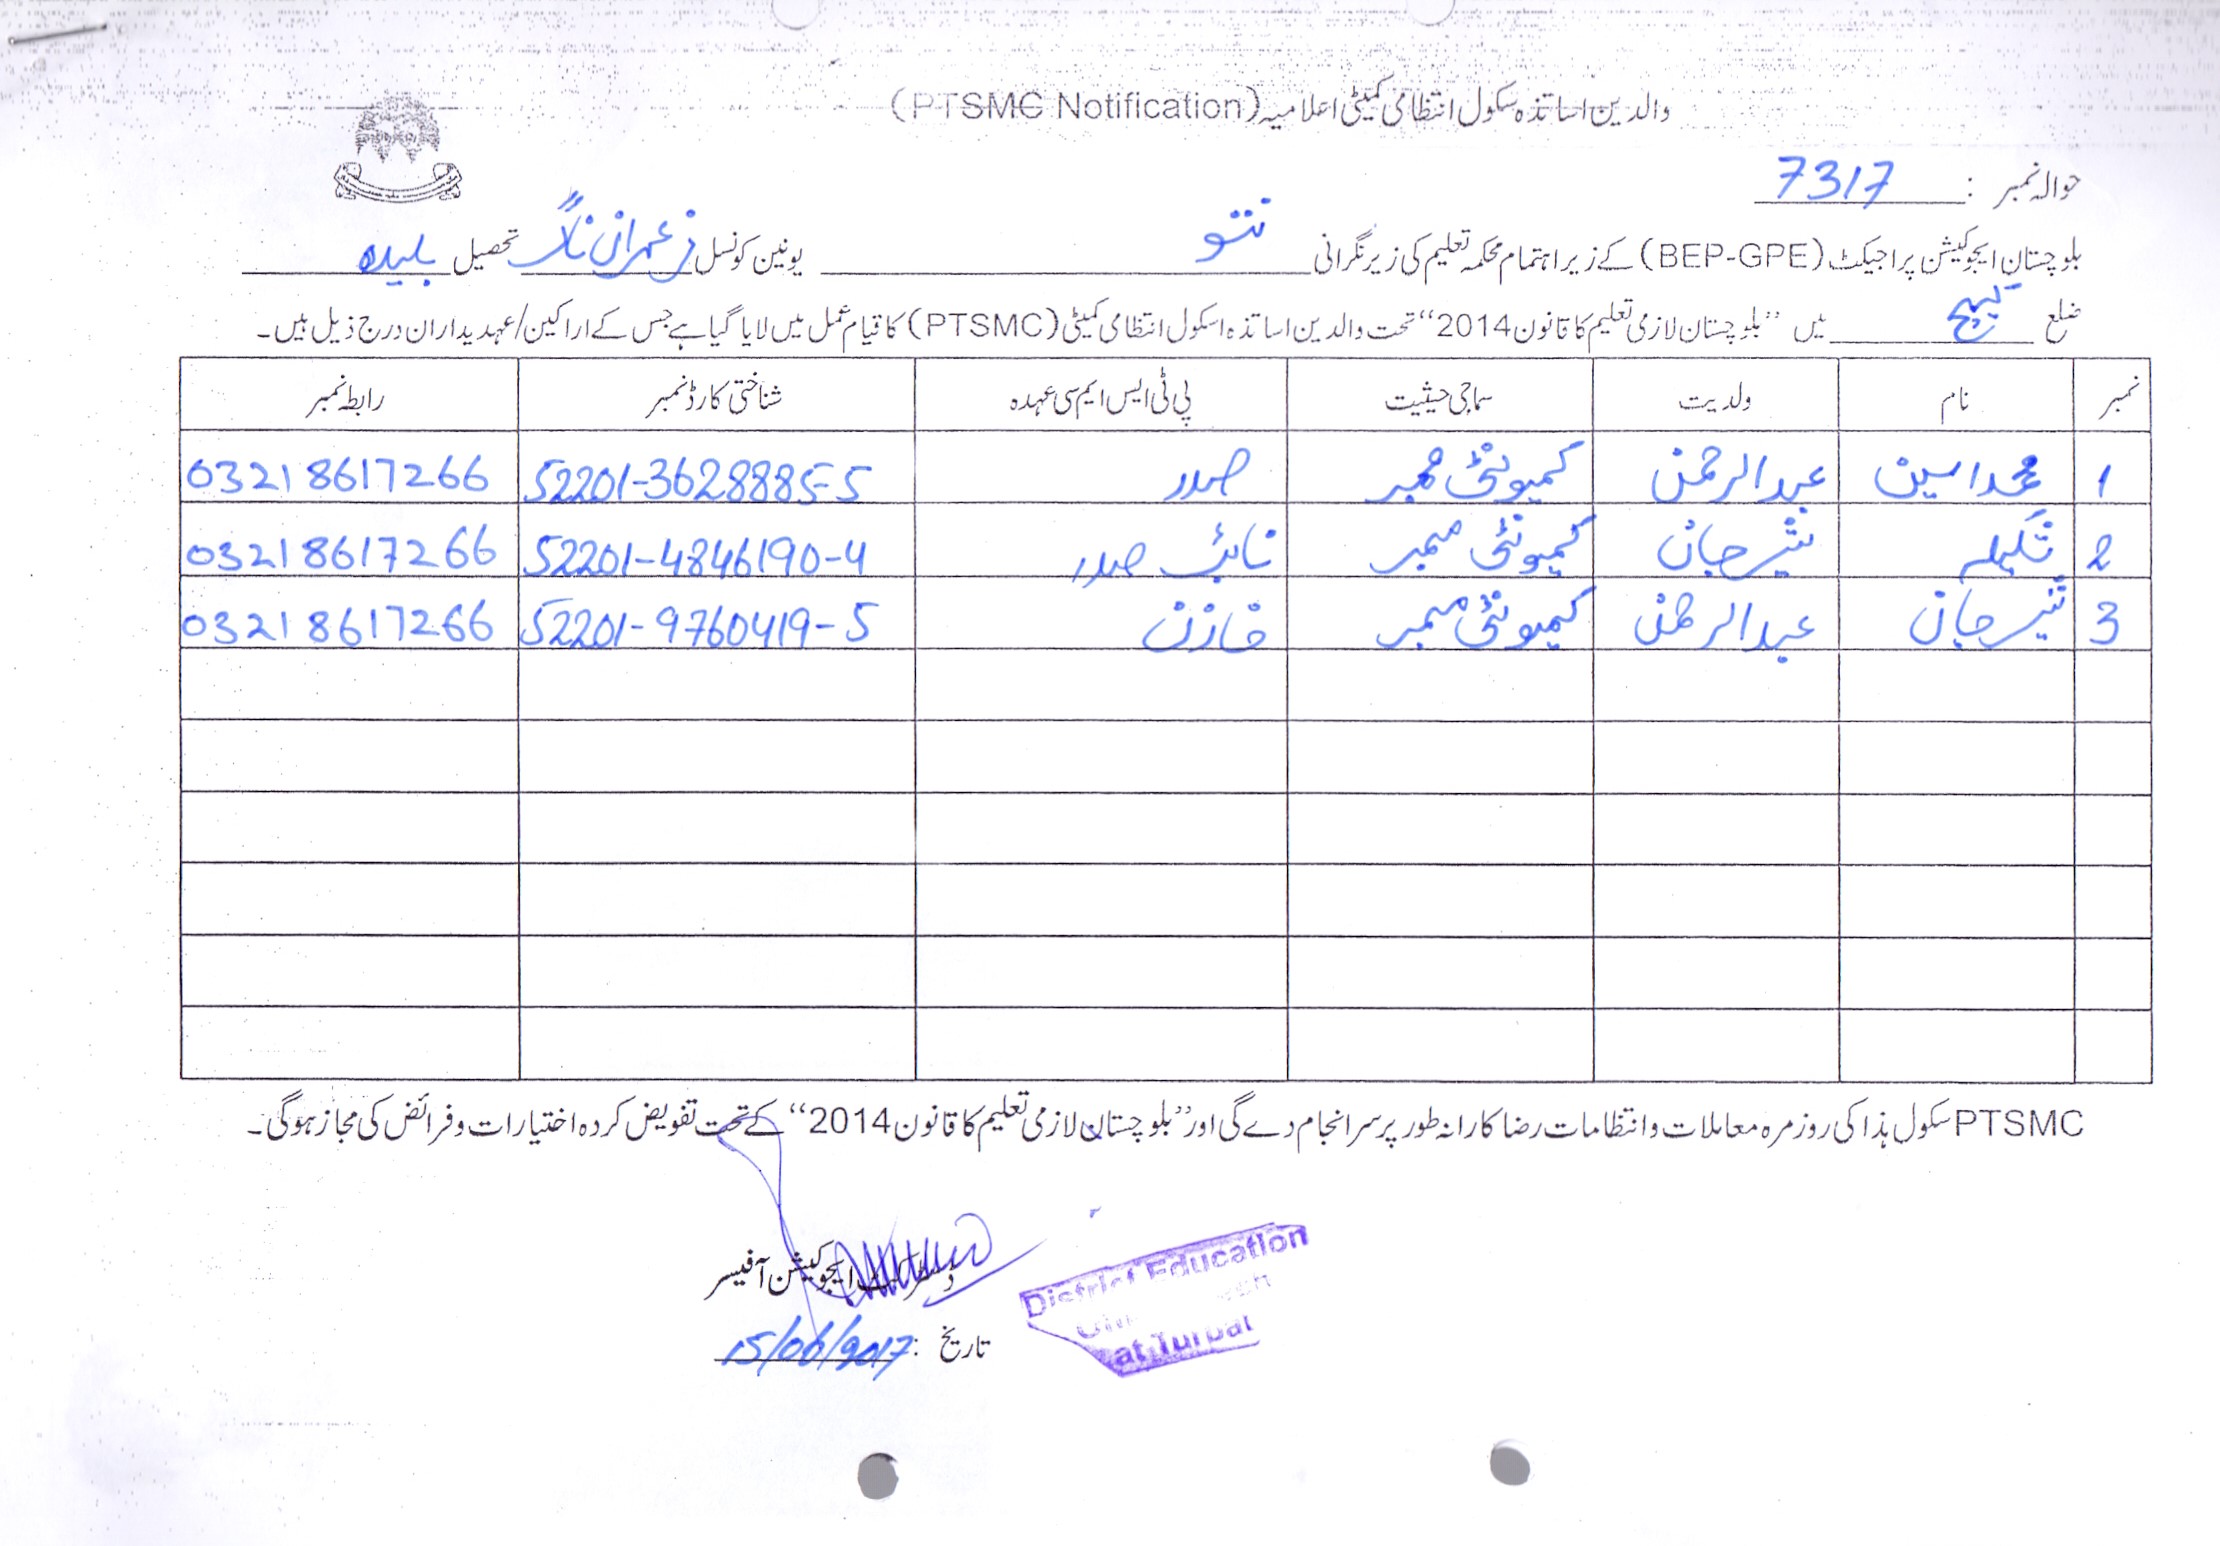 والدین اساتذہ سکول انتظامی کمیٹی اعلامیہ (PTSMC Notification)
حوالہ نمبر : 7317
بلوچستان ایجوکیشن پراجیکٹ (BEP-GPE) کے زیر اہتمام محکمہ تعلیم کی زیر نگرانی یونین کونسل زعمران تحصیل بلیدہ
ضلع کیچ میں ”بلوچستان لازمی تعلیم کا قانون 2014“ تحت والدین اساتذہ اسکول انتظامی کمیٹی (PTSMC) کا قیام عمل میں لایا گیا ہے جس کے اراکین/عہدیداران درج ذیل ہیں۔
نمبر نام ولدیت سماجی حیثیت پی ٹی ایس ایم سی عہدہ شناختی کارڈ نمبر رابطہ نمبر
1 محمد اسین عبدالرحمن کمیونٹی ممبر صدر 52201-3628885-5 03218617266
2 شکیلہ شیرجان کمیونٹی ممبر نائب صدر 52201-4846190-4 03218617266
3 شیرجان عبدالرحمن کمیونٹی ممبر خازن 52201-9760419-5 03218617266
PTSMC سکول ہذا کی روز مرہ معاملات و انتظامات رضا کارانہ طور پر سرانجام دے گی اور ”بلوچستان لازمی تعلیم کا قانون 2014“ کے تحت تفویض کردہ اختیارات و فرائض کی مجاز ہوگی۔
ڈسٹرکٹ ایجوکیشن آفیسر
District Education
at Turbat
تاریخ : 15/06/2017